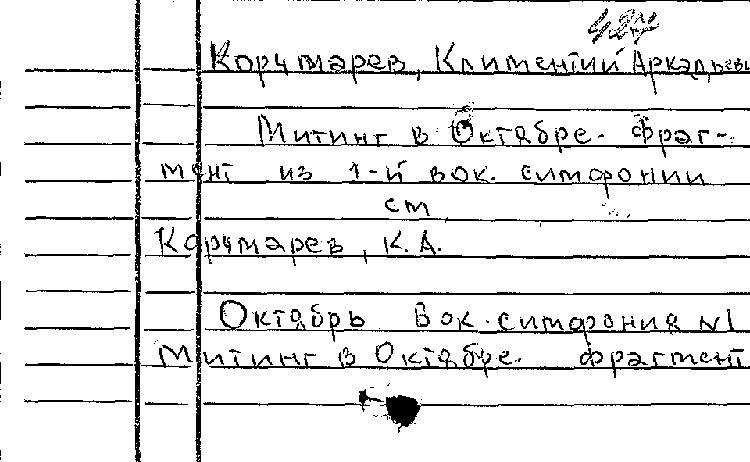 427
Корчмарев, Климентий Аркадьеви
Митинг в Октябре. Фраг-
мент из 1-й вок. симфонии
см
Корчмарев, К. А.
Октябрь Вок. симфония №1
Митинг в Октябре. фрагмент